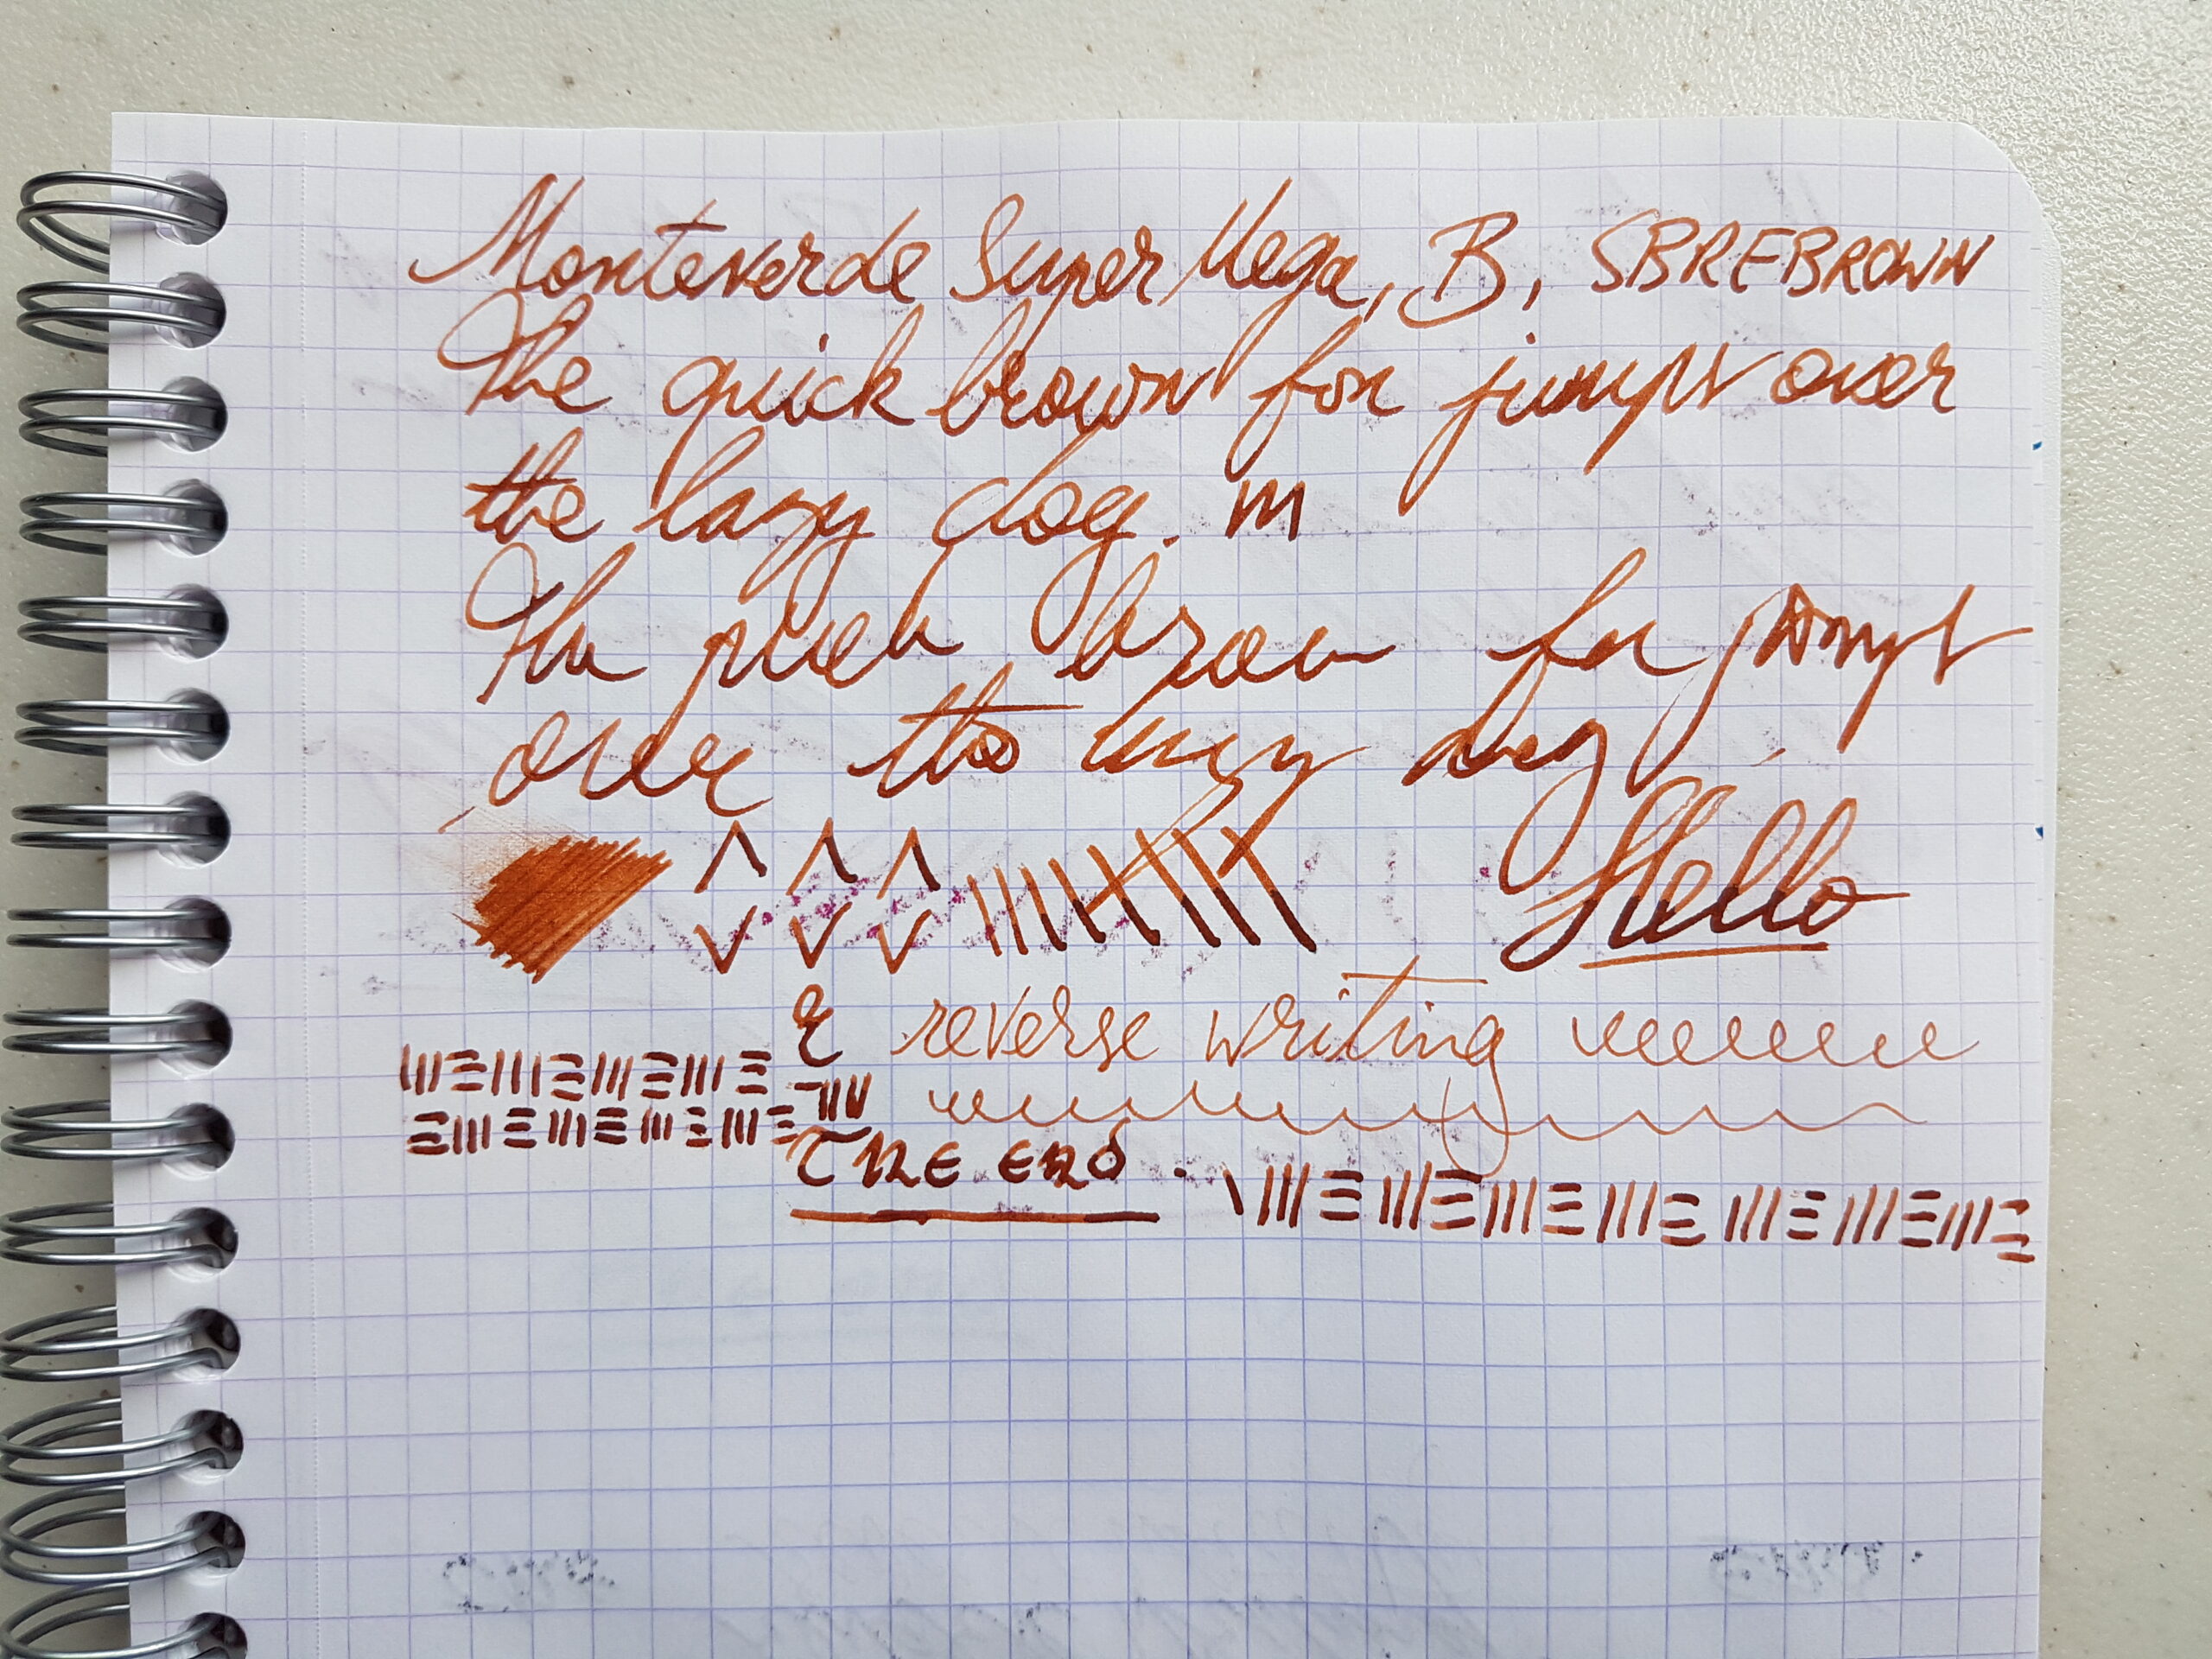 Monteverde Super Mega, B, SBREBROWN
The quick brown fox jumps over
the lazy dog. m
The quick brown fox jumps
over the lazy dog
Hello
& reverse writing
THE END.